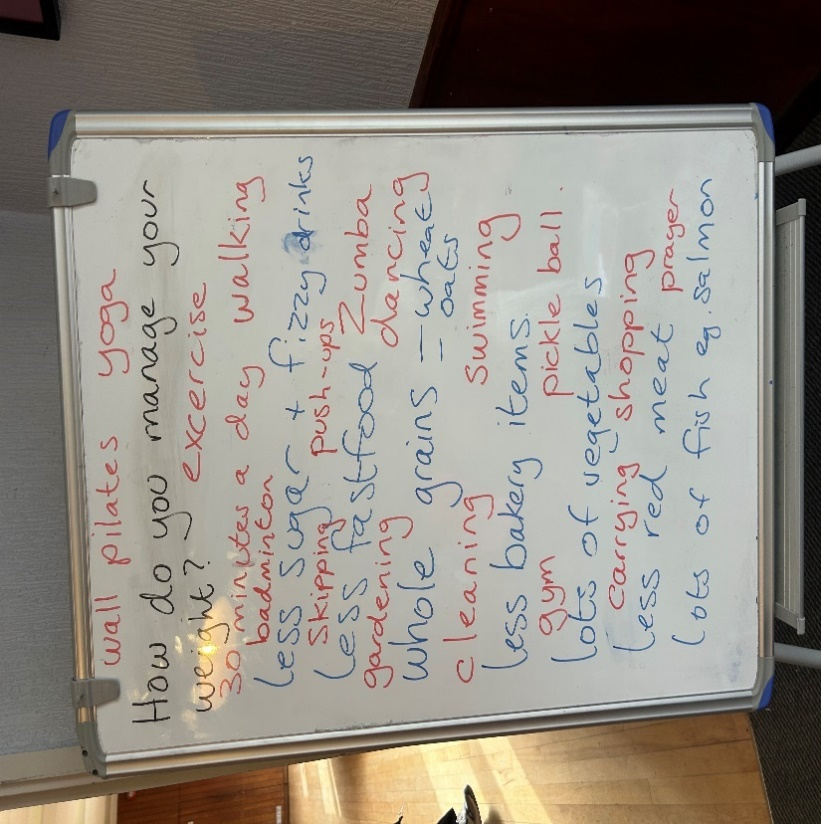 wall pilates yoga
How do you manage your
weight? excercise
30 minutes a day walking
badminton
Less sugar + fizzy drinks
Skipping push-ups
Less fastfood Zumba
gardening dancing
Whole grains - wheat
- oats
cleaning swimming
Less bakery items.
gym pickle ball.
Lots of vegetables
carrying shopping
Less red meat prayer
Lots of fish eg. Salmon